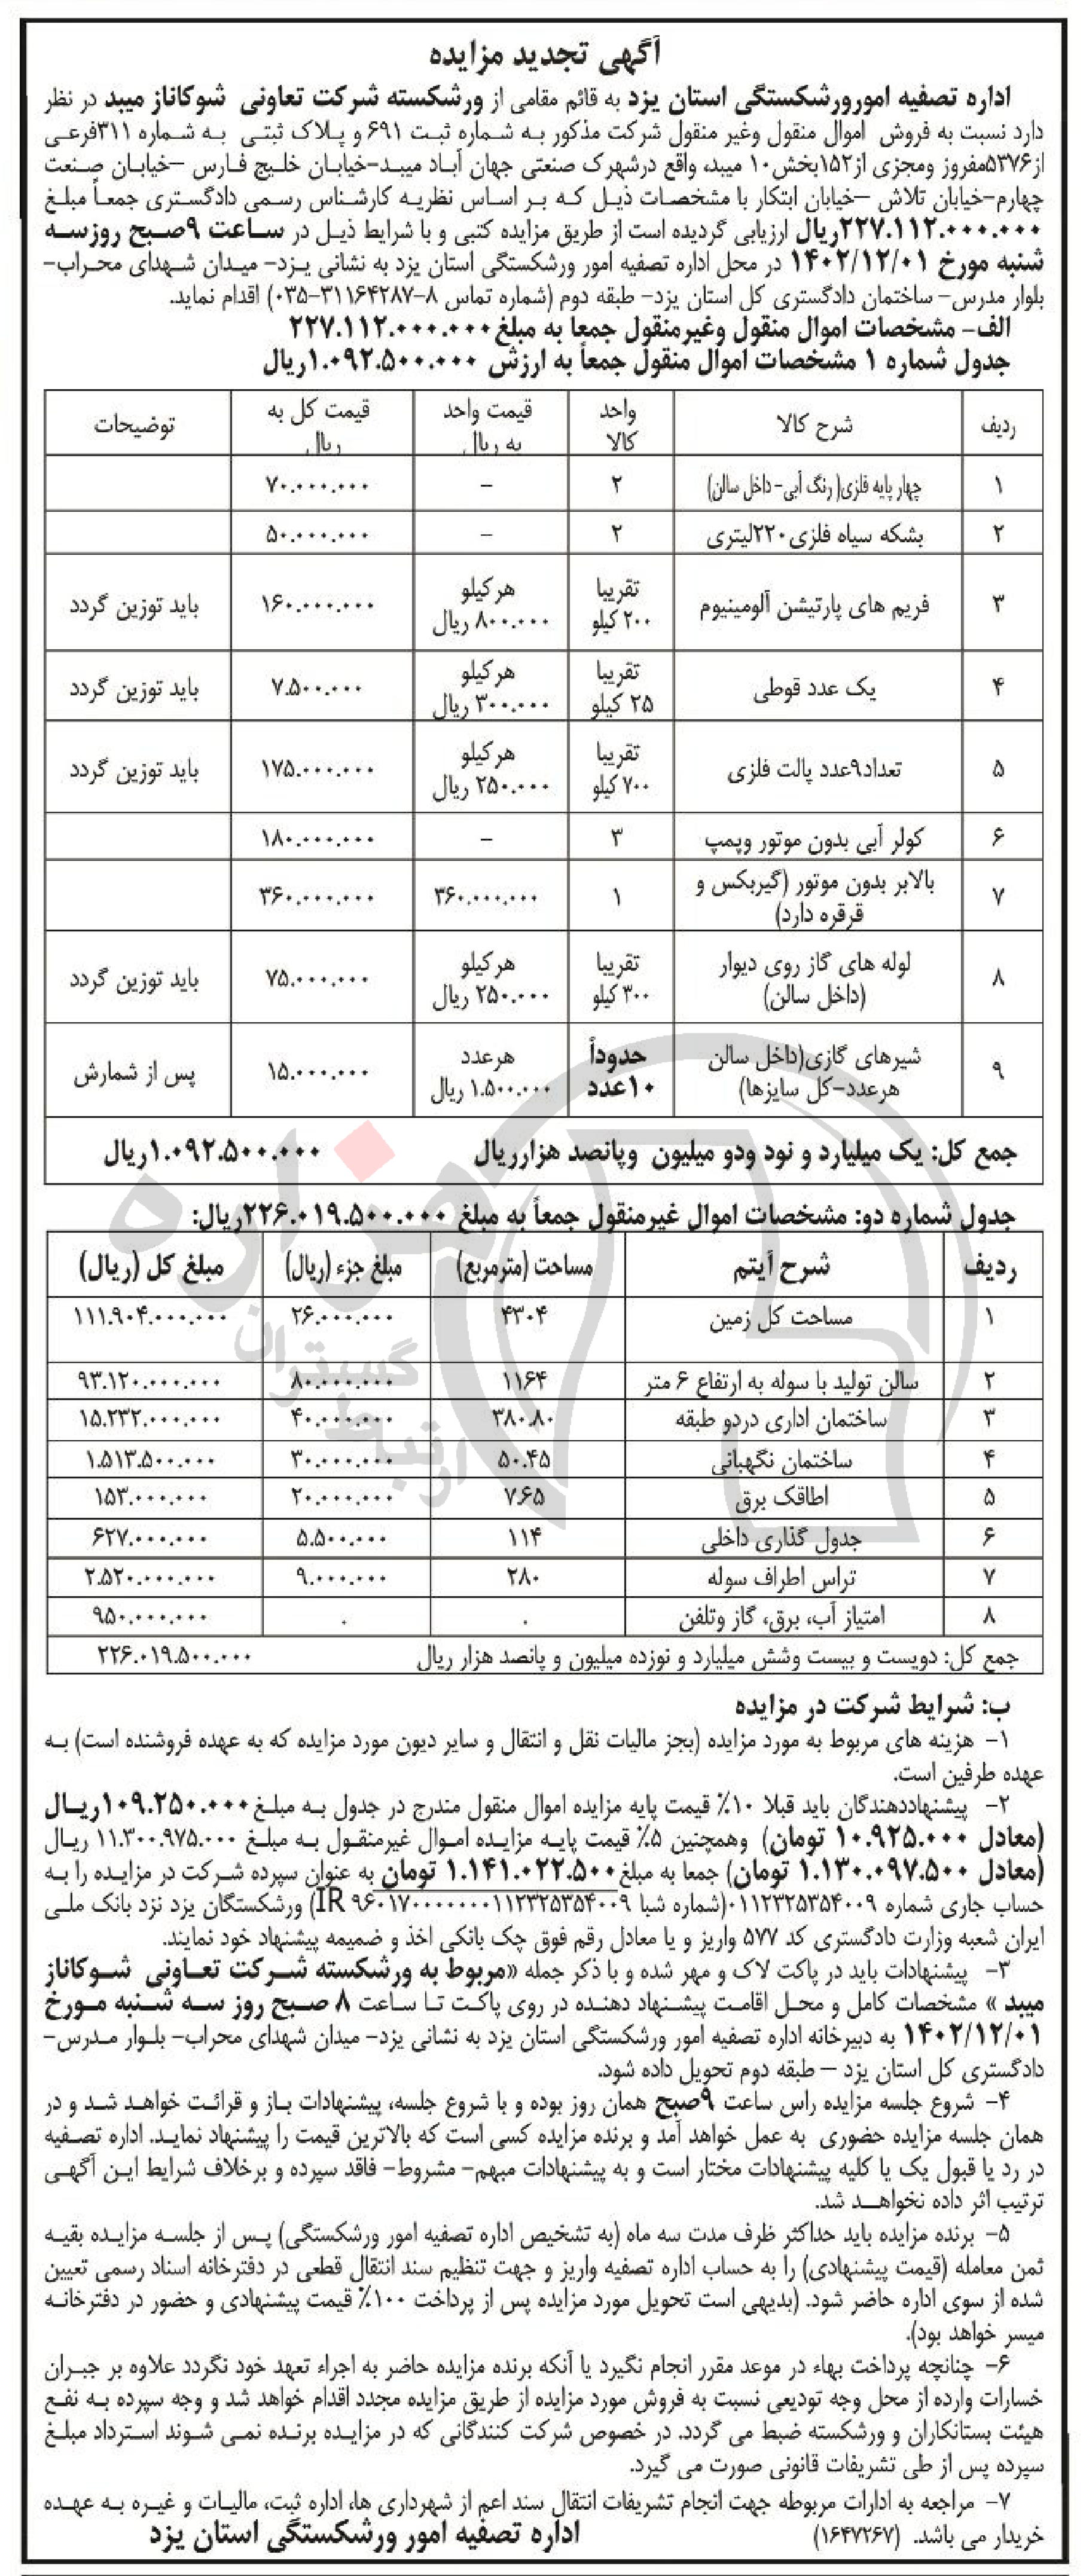 آگهی تجدید مزایده
اداره تصفیه امورورشکستگی استان یزد به قائم مقامی از ورشکسته شرکت تعاونی شوکاناز میبد در نظر
دارد نسبت به فروش اموال منقول وغیر منقول شرکت مذکور به شماره ثبت ۶۹۱ و پلاک ثبتی به شماره ۳۱۱فرعی
از۵۳۷۶مفروز ومجزی از۱۵۲بخش۱۰ میبد، واقع درشهرک صنعتی جهان آباد میبد-خیابان خلیج فارس -خیابان صنعت
چهارم-خیابان تلاش -خیابان ابتکار با مشخصات ذیل که بر اساس نظریه کارشناس رسمی دادگستری جمعاً مبلغ
۲۲۷.۱۱۲.۰۰۰.۰۰۰ریال ارزیابی گردیده است از طریق مزایده کتبی و با شرایط ذیل در ساعت ۹صبح روزسه
شنبه مورخ ۱۴۰۲/۱۲/۰۱ در محل اداره تصفیه امور ورشکستگی استان یزد به نشانی یزد- میدان شهدای محراب-
بلوار مدرس- ساختمان دادگستری کل استان یزد- طبقه دوم (شماره تماس ۸-۳۱۱۶۴۲۸۷-۰۳۵) اقدام نماید.
الف- مشخصات اموال منقول وغیرمنقول جمعا به مبلغ۲۲۷.۱۱۲.۰۰۰.۰۰۰
جدول شماره ۱ مشخصات اموال منقول جمعاً به ارزش ۱.۰۹۲.۵۰۰.۰۰۰ریال
ردیف شرح کالا واحد کالا قیمت واحد به ریال قیمت کل به ریال توضیحات
۱ چهار پایه فلزی(رنگ آبی-داخل سالن) ۲ - ۷۰.۰۰۰.۰۰۰
۲ بشکه سیاه فلزی۲۲۰لیتری ۲ - ۵۰.۰۰۰.۰۰۰
۳ فریم های پارتیشن آلومینیوم تقریبا ۲۰۰ کیلو هرکیلو ۸۰۰.۰۰۰ ریال ۱۶۰.۰۰۰.۰۰۰ باید توزین گردد
۴ یک عدد قوطی تقریبا ۲۵ کیلو هرکیلو ۳۰۰.۰۰۰ ریال ۷.۵۰۰.۰۰۰ باید توزین گردد
۵ تعداد۹عدد پالت فلزی تقریبا ۷۰۰ کیلو هرکیلو ۲۵۰.۰۰۰ ریال ۱۷۵.۰۰۰.۰۰۰ باید توزین گردد
۶ کولر آبی بدون موتور وپمپ ۳ - ۱۸۰.۰۰۰.۰۰۰
۷ بالابر بدون موتور (گیربکس و قرقره دارد) ۱ ۳۶۰.۰۰۰.۰۰۰ ۳۶۰.۰۰۰.۰۰۰
۸ لوله های گاز روی دیوار (داخل سالن) تقریبا ۳۰۰ کیلو هرکیلو ۲۵۰.۰۰۰ ریال ۷۵.۰۰۰.۰۰۰ باید توزین گردد
۹ شیرهای گازی(داخل سالن هرعدد-کل سایزها) حدوداً ۱۰عدد هرعدد ۱.۵۰۰.۰۰۰ ریال ۱۵.۰۰۰.۰۰۰ پس از شمارش
جمع کل: یک میلیارد و نود ودو میلیون وپانصد هزارریال ۱.۰۹۲.۵۰۰.۰۰۰ریال
جدول شماره دو: مشخصات اموال غیرمنقول جمعاً به مبلغ ۲۲۶.۰۱۹.۵۰۰.۰۰۰ریال:
ردیف شرح آیتم مساحت (مترمربع) مبلغ جزء (ریال) مبلغ کل (ریال)
۱ مساحت کل زمین ۴۳۰۴ ۲۶.۰۰۰.۰۰۰ ۱۱۱.۹۰۴.۰۰۰.۰۰۰
۲ سالن تولید با سوله به ارتفاع ۶ متر ۱۱۶۴ ۸۰.۰۰۰.۰۰۰ ۹۳.۱۲۰.۰۰۰.۰۰۰
۳ ساختمان اداری دردو طبقه ۳۸۰.۸۰ ۴۰.۰۰۰.۰۰۰ ۱۵.۲۳۲.۰۰۰.۰۰۰
۴ ساختمان نگهبانی ۵۰.۴۵ ۳۰.۰۰۰.۰۰۰ ۱.۵۱۳.۵۰۰.۰۰۰
۵ اطاقک برق ۷.۶۵ ۲۰.۰۰۰.۰۰۰ ۱۵۳.۰۰۰.۰۰۰
۶ جدول گذاری داخلی ۱۱۴ ۵.۵۰۰.۰۰۰ ۶۲۷.۰۰۰.۰۰۰
۷ تراس اطراف سوله ۲۸۰ ۹.۰۰۰.۰۰۰ ۲.۵۲۰.۰۰۰.۰۰۰
۸ امتیاز آب، برق، گاز وتلفن . . ۹۵۰.۰۰۰.۰۰۰
جمع کل: دویست و بیست وشش میلیارد و نوزده میلیون و پانصد هزار ریال ۲۲۶.۰۱۹.۵۰۰.۰۰۰
هزاره
گستران
ارتباط
ب: شرایط شرکت در مزایده
۱- هزینه های مربوط به مورد مزایده (بجز مالیات نقل و انتقال و سایر دیون مورد مزایده که به عهده فروشنده است) به
عهده طرفین است.
۲- پیشنهاددهندگان باید قبلا ۱۰٪ قیمت پایه مزایده اموال منقول مندرج در جدول به مبلغ۱۰۹.۲۵۰.۰۰۰ریال
(معادل ۱۰.۹۲۵.۰۰۰ تومان) وهمچنین ۵٪ قیمت پایه مزایده اموال غیرمنقول به مبلغ ۱۱.۳۰۰.۹۷۵.۰۰۰ ریال
(معادل ۱.۱۳۰.۰۹۷.۵۰۰ تومان) جمعا به مبلغ۱.۱۴۱.۰۲۲.۵۰۰ تومان به عنوان سپرده شرکت در مزایده را به
حساب جاری شماره ۰۱۱۲۳۲۵۳۵۴۰۰۹(شماره شبا IR ۹۶۰۱۷۰۰۰۰۰۰۰۱۱۲۳۲۵۳۵۴۰۰۹) ورشکستگان یزد نزد بانک ملی
ایران شعبه وزارت دادگستری کد ۵۷۷ واریز و یا معادل رقم فوق چک بانکی اخذ و ضمیمه پیشنهاد خود نمایند.
۳- پیشنهادات باید در پاکت لاک و مهر شده و با ذکر جمله «مربوط به ورشکسته شرکت تعاونی شوکاناز
میبد » مشخصات کامل و محل اقامت پیشنهاد دهنده در روی پاکت تا ساعت ۸ صبح روز سه شنبه مورخ
۱۴۰۲/۱۲/۰۱ به دبیرخانه اداره تصفیه امور ورشکستگی استان یزد به نشانی یزد- میدان شهدای محراب- بلوار مدرس-
دادگستری کل استان یزد – طبقه دوم تحویل داده شود.
۴- شروع جلسه مزایده راس ساعت ۹صبح همان روز بوده و با شروع جلسه، پیشنهادات باز و قرائت خواهد شد و در
همان جلسه مزایده حضوری به عمل خواهد آمد و برنده مزایده کسی است که بالاترین قیمت را پیشنهاد نماید. اداره تصفیه
در رد یا قبول یک یا کلیه پیشنهادات مختار است و به پیشنهادات مبهم- مشروط- فاقد سپرده و برخلاف شرایط این آگهی
ترتیب اثر داده نخواهد شد.
۵- برنده مزایده باید حداکثر ظرف مدت سه ماه (به تشخیص اداره تصفیه امور ورشکستگی) پس از جلسه مزایده بقیه
ثمن معامله (قیمت پیشنهادی) را به حساب اداره تصفیه واریز و جهت تنظیم سند انتقال قطعی در دفترخانه اسناد رسمی تعیین
شده از سوی اداره حاضر شود. (بدیهی است تحویل مورد مزایده پس از پرداخت ۱۰۰٪ قیمت پیشنهادی و حضور در دفترخانه
میسر خواهد بود).
۶- چنانچه پرداخت بهاء در موعد مقرر انجام نگیرد یا آنکه برنده مزایده حاضر به اجراء تعهد خود نگردد علاوه بر جبران
خسارات وارده از محل وجه تودیعی نسبت به فروش مورد مزایده از طریق مزایده مجدد اقدام خواهد شد و وجه سپرده به نفع
هیئت بستانکاران و ورشکسته ضبط می گردد. در خصوص شرکت کنندگانی که در مزایده برنده نمی شوند استرداد مبلغ
سپرده پس از طی تشریفات قانونی صورت می گیرد.
۷- مراجعه به ادارات مربوطه جهت انجام تشریفات انتقال سند اعم از شهرداری ها، اداره ثبت، مالیات و غیره به عهده
خریدار می باشد. (۱۶۴۷۲۶۷) اداره تصفیه امور ورشکستگی استان یزد